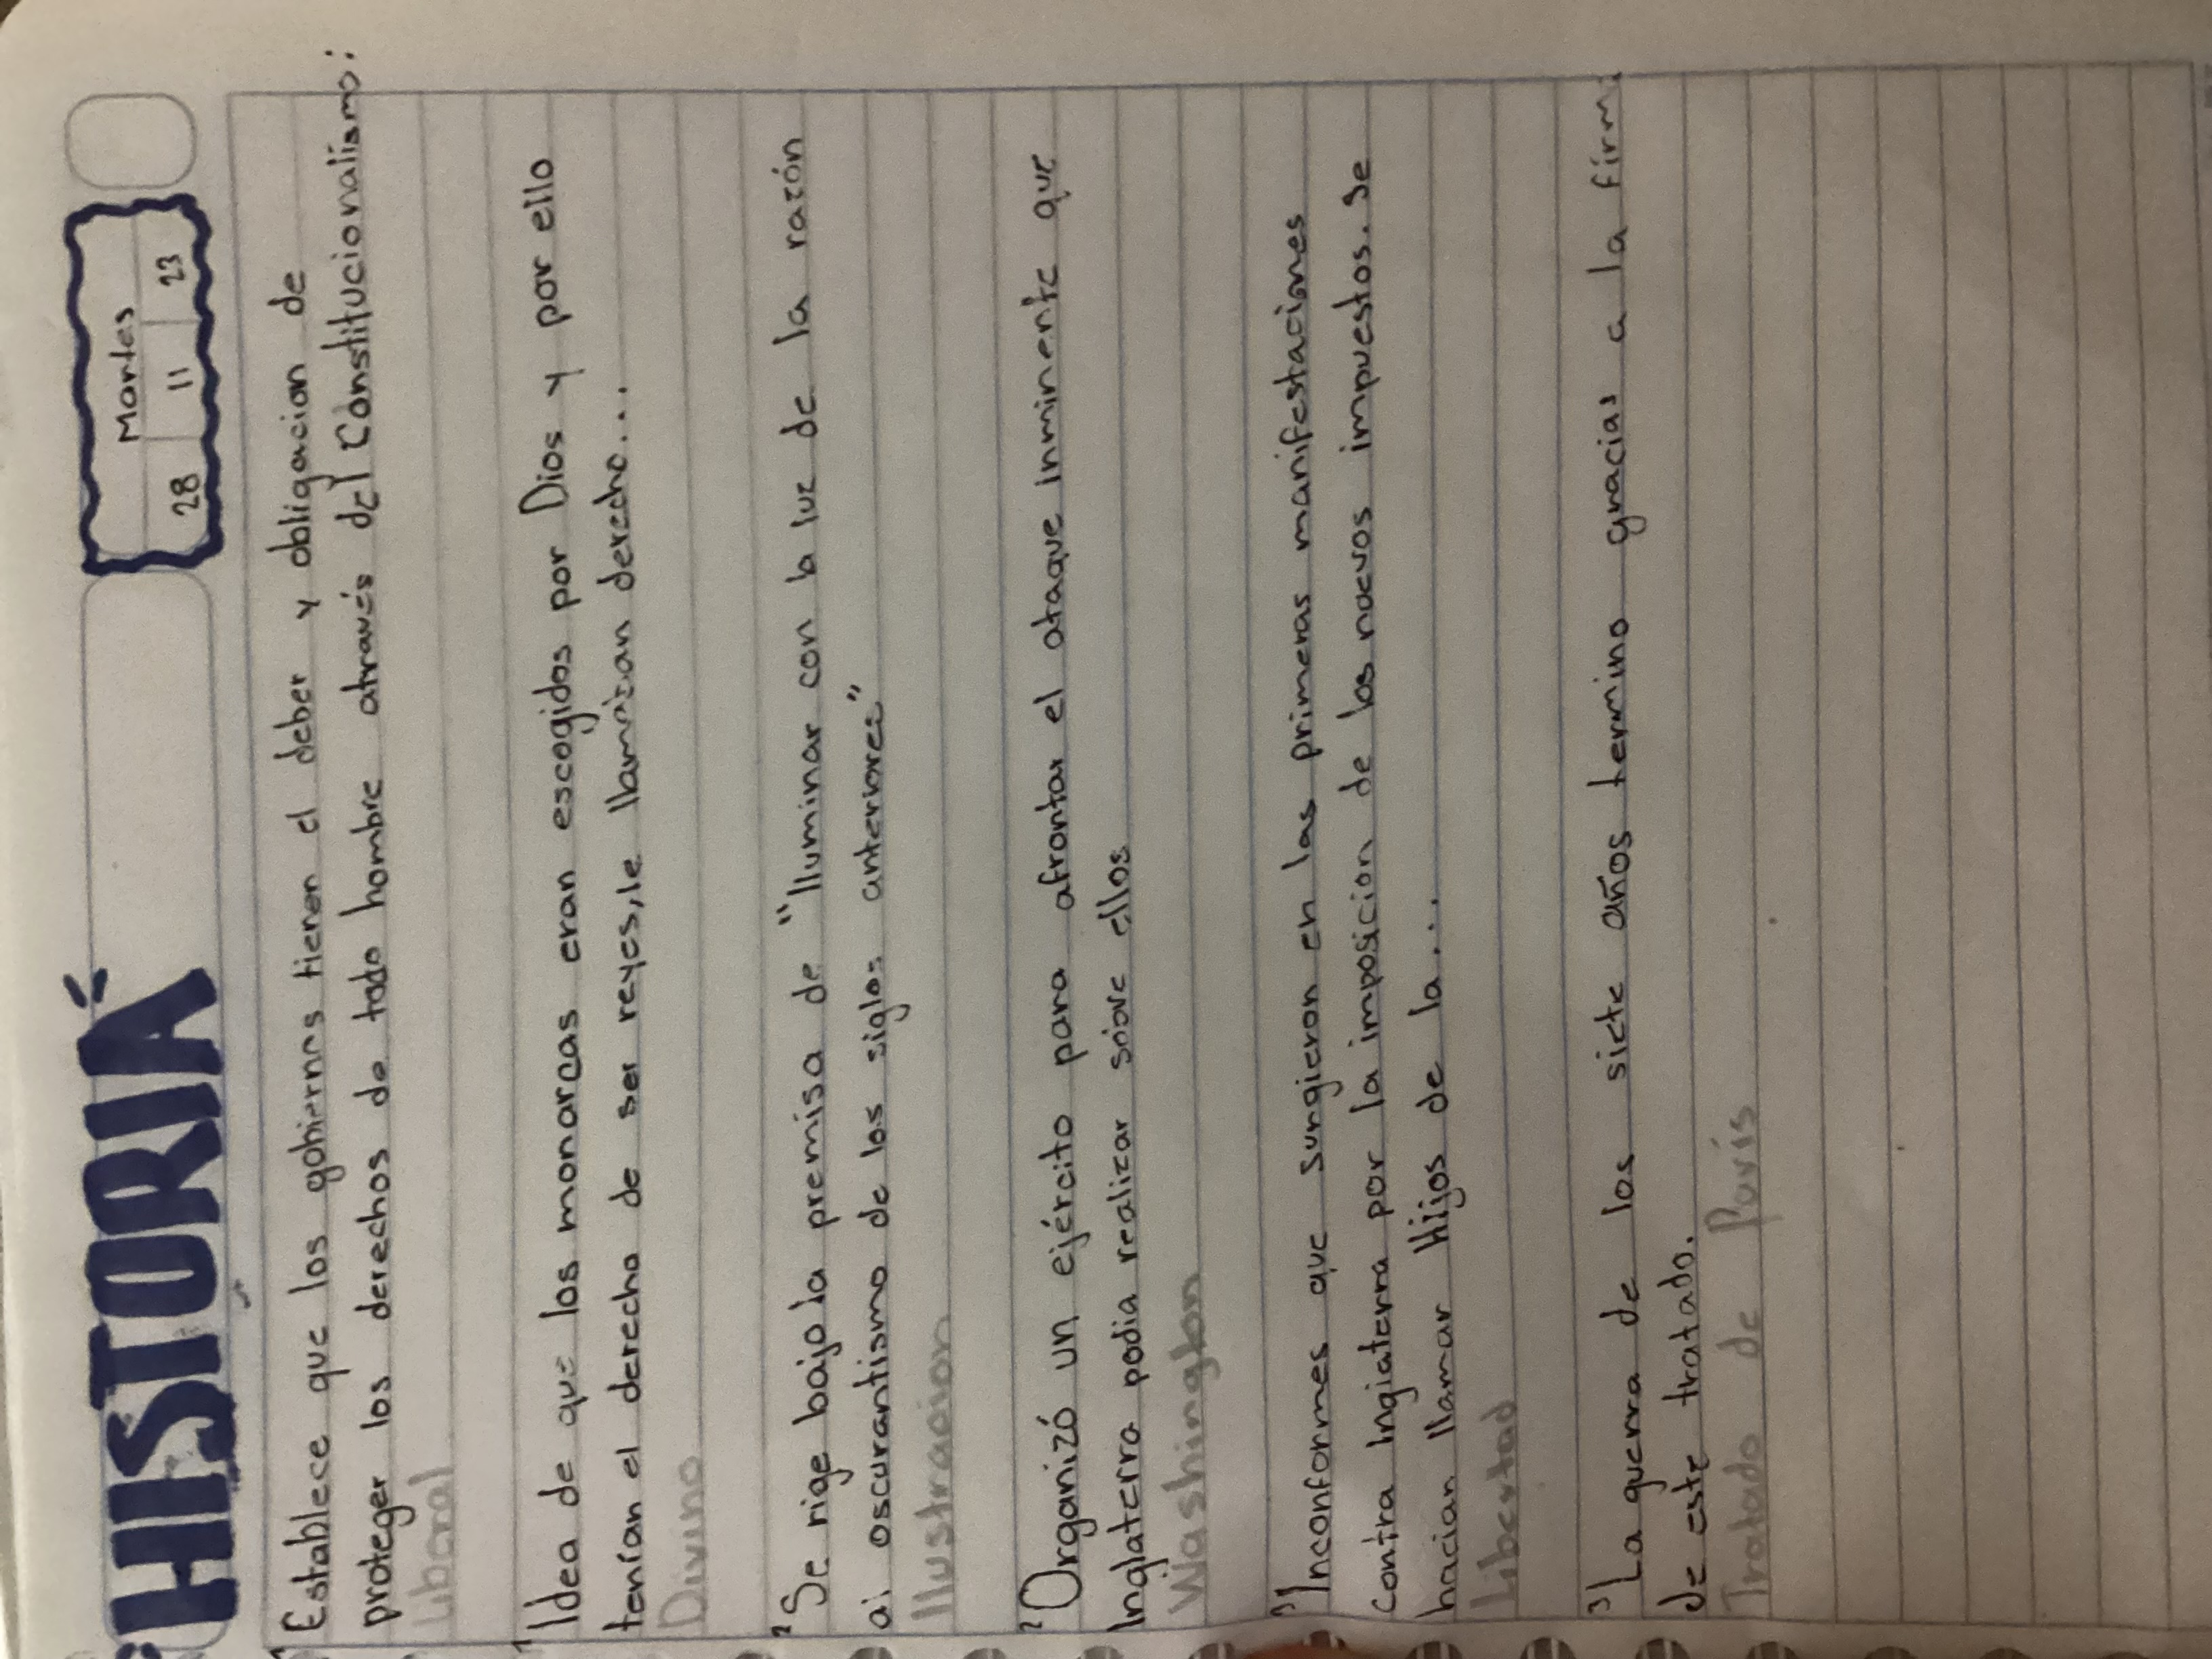 HISTORIA
Martes
28 11 23
1 Establece que los gobiernos tienen el deber y obligacion de
proteger los derechos de todo hombre através del Constitucionalismo:
Liberal
1 Idea de que los monarcas eran escogidos por Dios y por ello
tenían el derecho de ser reyes, le llamaban derecho...
Divino
2 Se rige bajo la premisa de "Iluminar con la luz de la razón
al oscurantismo de los siglos anteriores"
Ilustracion
2 Organizó un ejército para afrontar el ataque inminente que
Inglaterra podia realizar sobre ellos
Washington
3) Inconformes que surgieron en las primeras manifestaciones
contra Inglaterra por la imposicion de los nuevos impuestos. Se
hacian llamar Hijos de la...
Libertad
3) La guerra de los siete años termino gracias a la firm
de este tratado.
Tratado de París